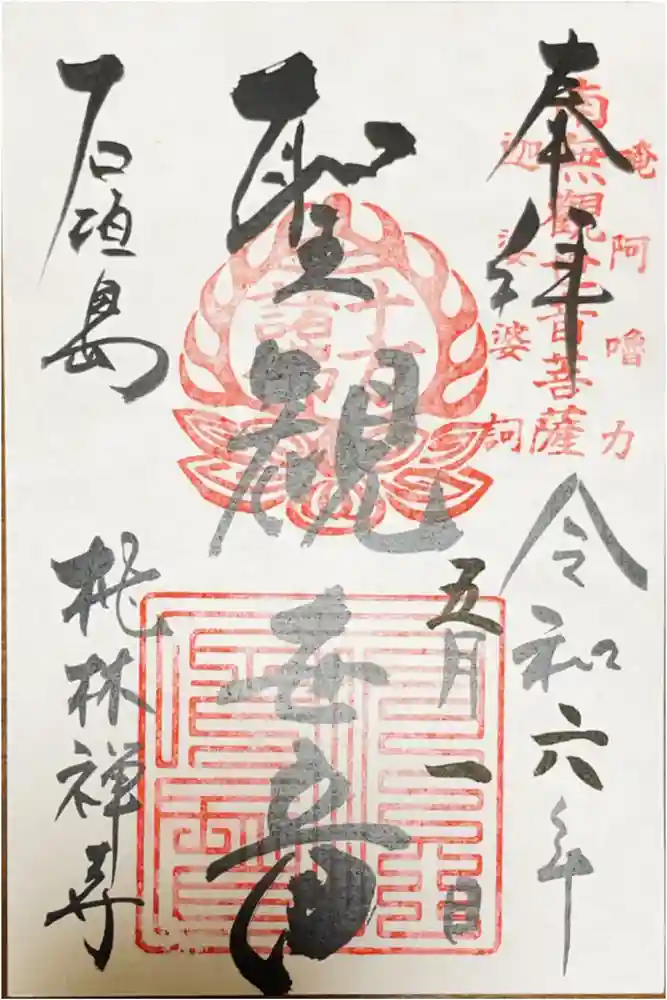 奉拝
南無観世音菩薩
唵阿嚕力
迦婆婆訶
令和六年
五月一日
聖観世音
石垣島
桃林禅寺